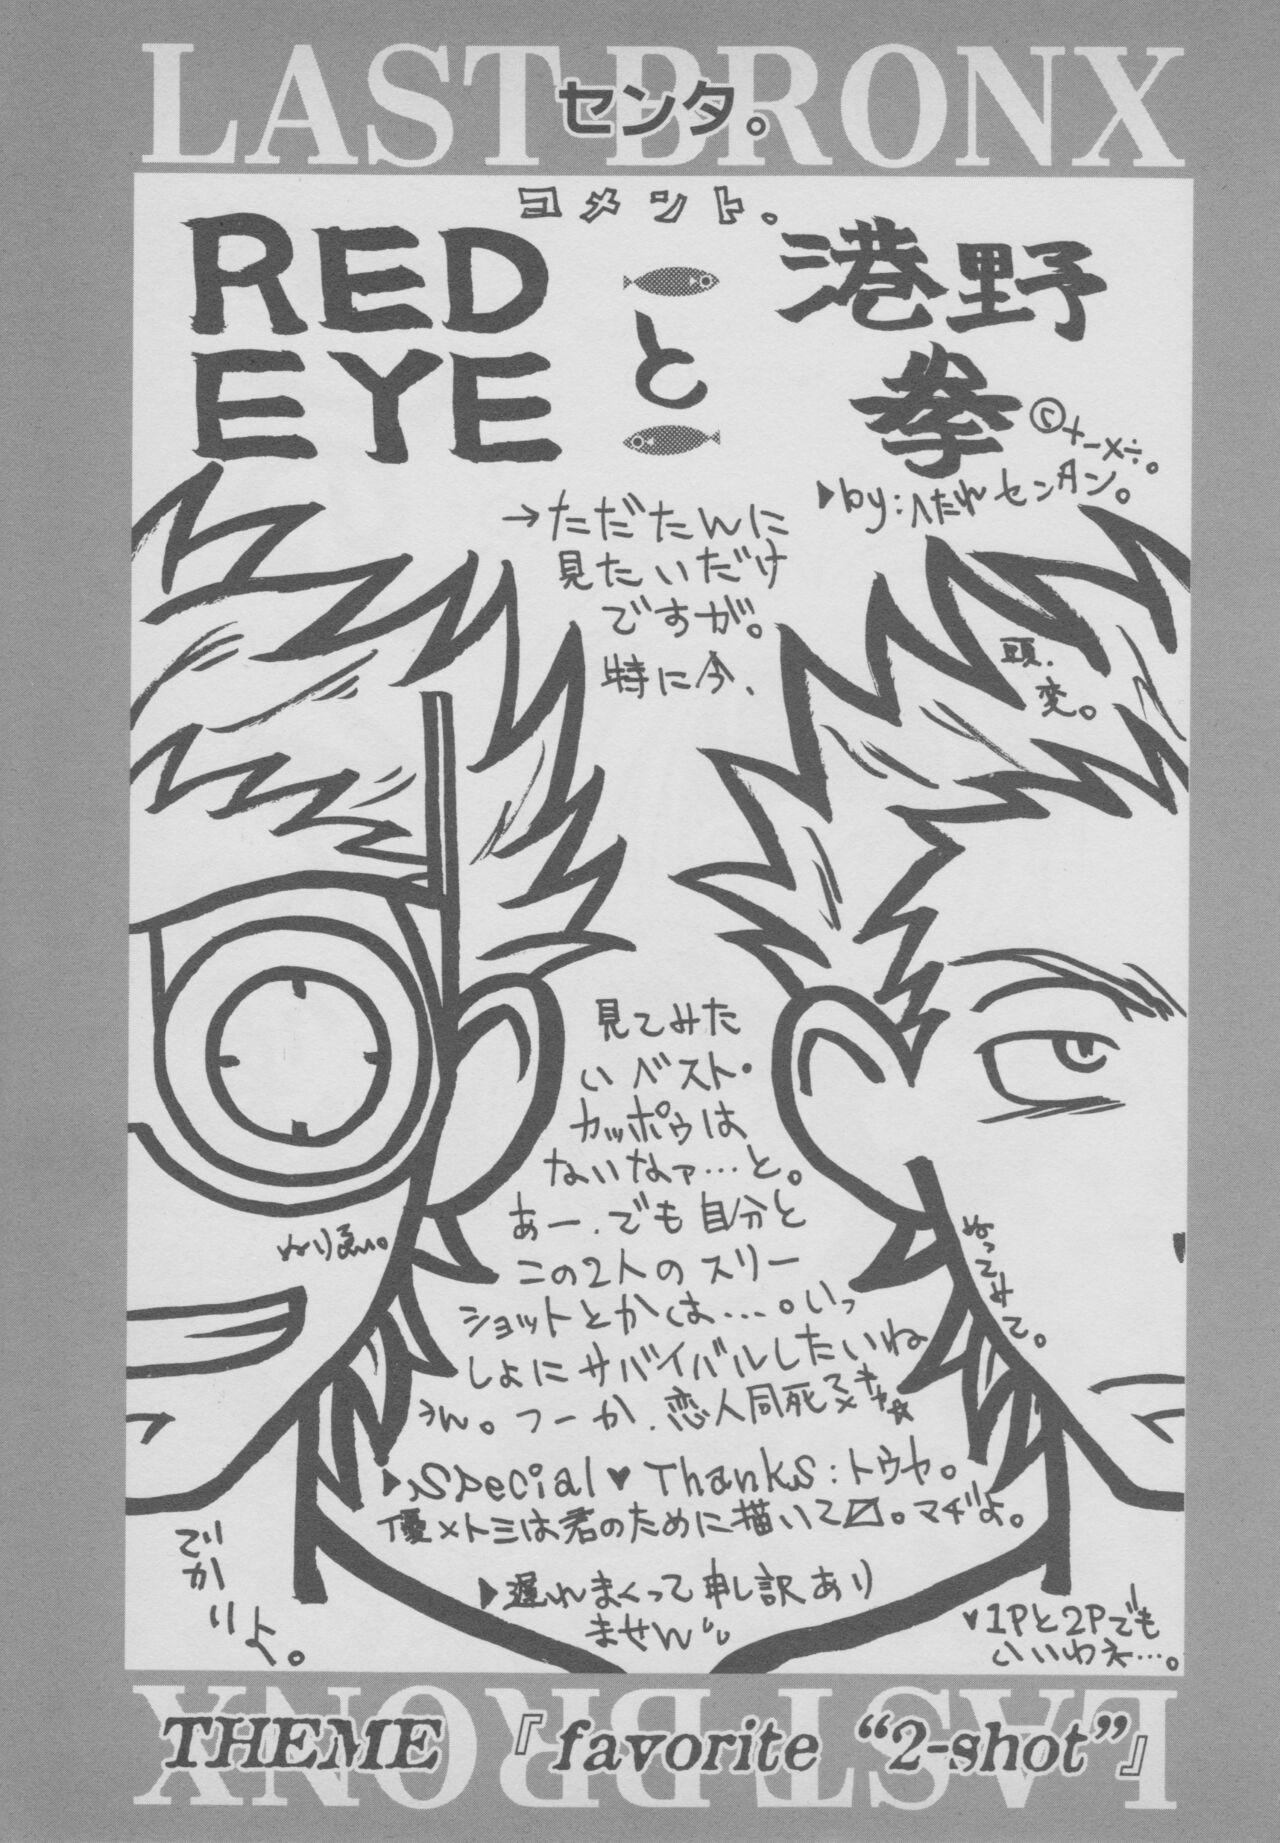 LAST BRONX
センタ。
コメント。
RED
EYE
と
港野
拳
ⓒ+-×÷。
▶by:へたれセンタン。
→ただたんに
見たいだけ
ですが。
特に今、
頭、
変。
見てみた
いベスト・
カッポゥは
ないなァ…と。
あー、でも自分と
この2人のスリー
ショットとかは…。いっ
しょにサバイバルしたいね
うん。つーか、恋人同死
ぬってみて。
▶Special♥Thanks:トウヤ。
優×トミは君のために描いて〼。マヂよ。
▶遅れまくって申し訳あり
ません
でかりよ。
♥1Pと2Pでも
いいわネ…。
LAST BRONX
THEME 『favorite “2-shot”』